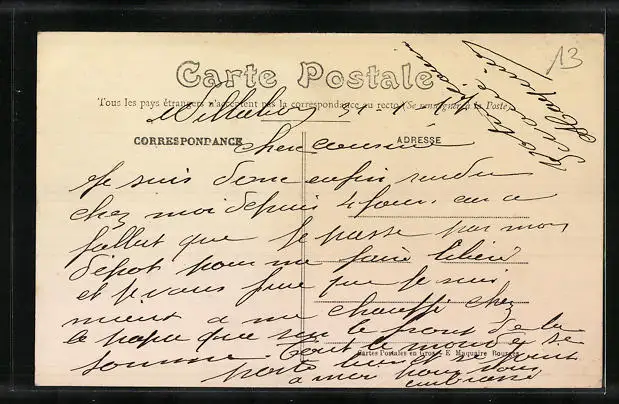 13
Carte Postale
Tous les pays étrangers n'acceptent pas la correspondance au recto (Se renseigner à la Poste)
31-1-
CORRESPONDANCE
ADRESSE
cher cousin
Je suis donc enfin rendu
chez moi depuis 4 jour. on a
fallut que je passe par mon
dépot pour me faire
et je vous jure que je suis
mieux a me chauffé chez
le papa que sur le front de la
Somme. Tout le monde se
porte bien
a moi pour vous
embrassé
Cartes Postales en Gros - E. Maquaire Bourges
Votre